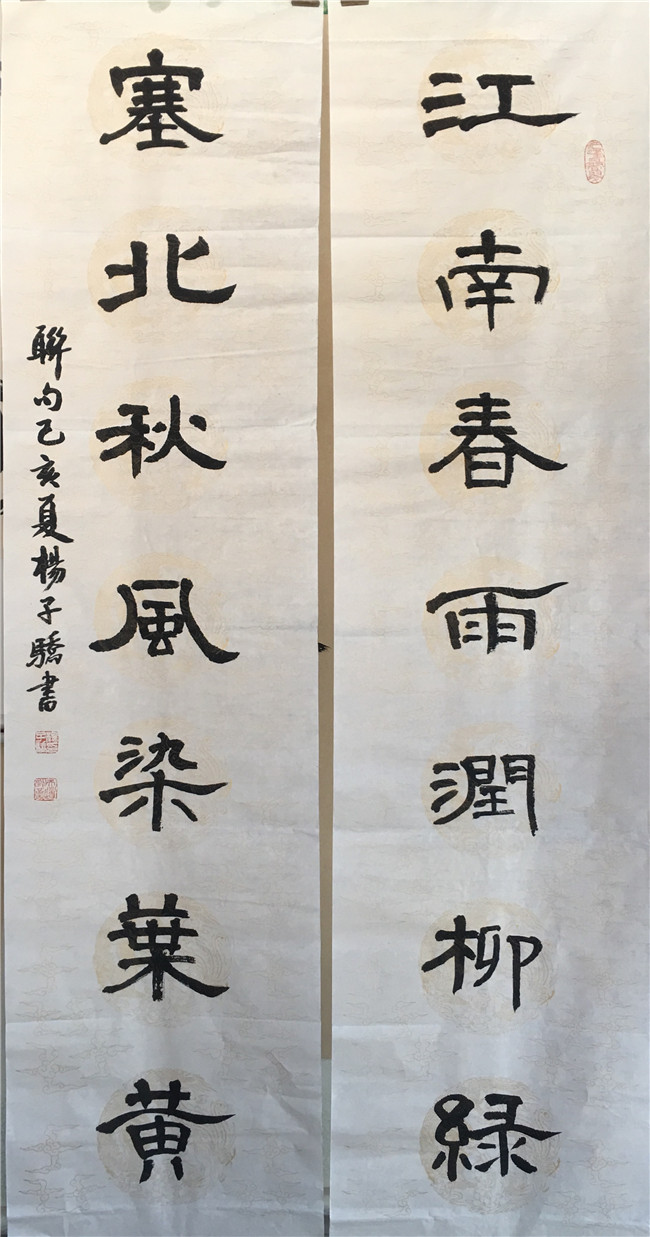 江南春雨潤柳綠
塞北秋風染葉黄
聯句己亥夏楊子驕書